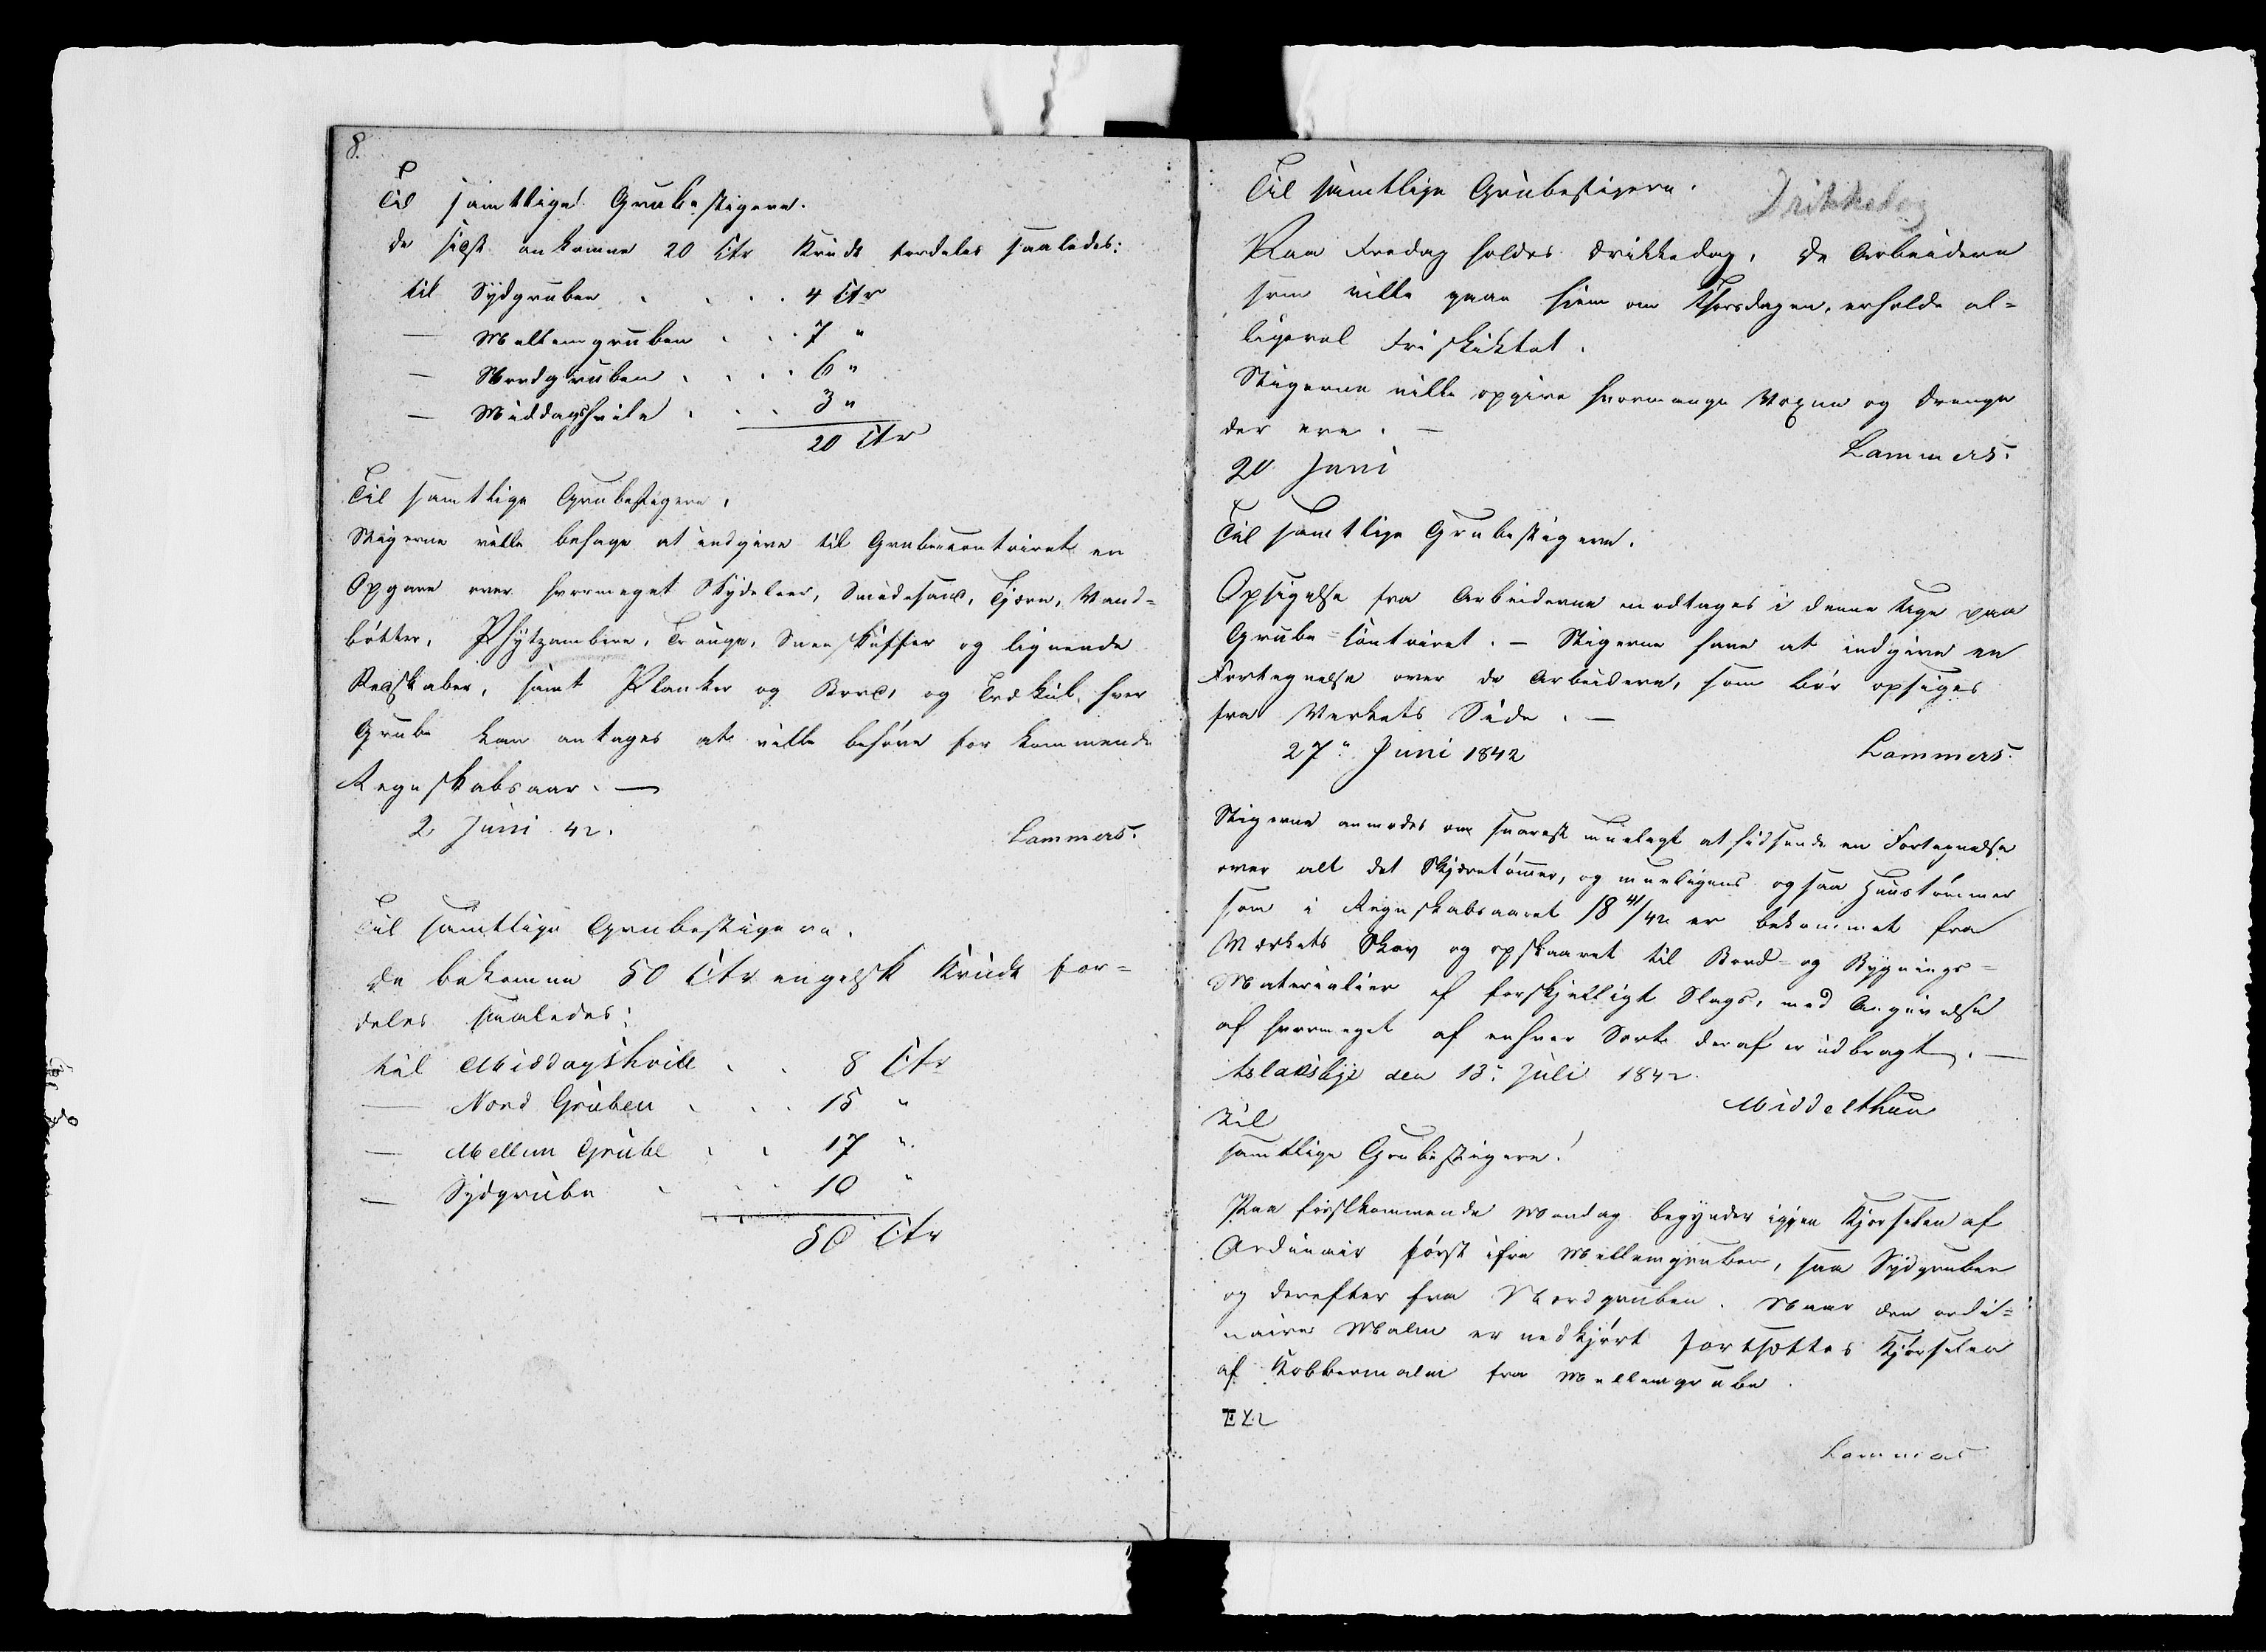 8.
Til samtlige Grubestigere.
de sidst ankomne 20 Ctr Krudt fordeles saaledes:
til Sydgruben . . . . 4 Ctr
— Mellemgruben . . . 7 "
— Nordgruben . . . . 6 "
— Middagshvile . . . 3 "
20 Ctr
Til samtlige Grubestigere,
Stigerne ville behage at indgive til Grubecontoiret en
Opgave over hvormeget Skydeleer, Smedesand, Tjære, Vand-
bøtter, Trauge, Sneeskuffer og lignende
Redskaber, samt Planker og Bord, og Trækul hver
Grube kan antages at ville behøve for kommende
Regnskabsaar. —
2 Juni 42.
Lammers.
Til samtlige Grubestigere.
De bekomne 50 Ctr engelsk Krudt for-
deles saaledes:
til Middagshvile . . 8 Ctr
— Nord Gruben . . . 15 "
— Mellem Grube . . 17 "
— Sydgrube . . . 10 "
50 Ctr
Til samtlige Grubestigere.
Drikkedag
Paa Fredag holdes Drikkedag, de Arbeidere
som ville gaae hjem om Thorsdagen, erholde al-
ligevel Friskiktet.
Stigerne ville opgive hvormange Voxne og Drenge
der ere. —
Lammers.
20 Juni
Til samtlige Grubestigere.
Opsigelse fra Arbeiderne modtages i denne Uge paa
Grube-Contoiret. — Stigerne have at indgive en
Fortegnelse over de Arbeidere, som bør opsiges
fra Verkets Side. —
27" Juni 1842
Lammers.
Stigerne anmodes om snarest mueligt at hidsende en Fortegnelse
over alt det Skjæretømmer, og mueligens ogsaa Huustømmer
som i Regnskabsaaret 18 41/42 er bekommet fra
Værkets Skov og opskaaret til Bord- og Bygnings-
Materialier af forskjelligt Slags, med Angivelse
af hvormeget af enhver Sort deraf er udbragt. —
Aslaksbye den 13" Juli 1842.
Middelthun
Til
samtlige Grubestigere!
Paa førstkommende Mandag begynder igjen Kjørselen af
Ordinair først ifra Mellemgruben, saa Sydgruben
og derefter fra Nordgruben. Naar den ordi-
naire Malm er nedkjørt fortsættes Kjørselen
af Kobbermalm fra Mellemgrube.
Lammers